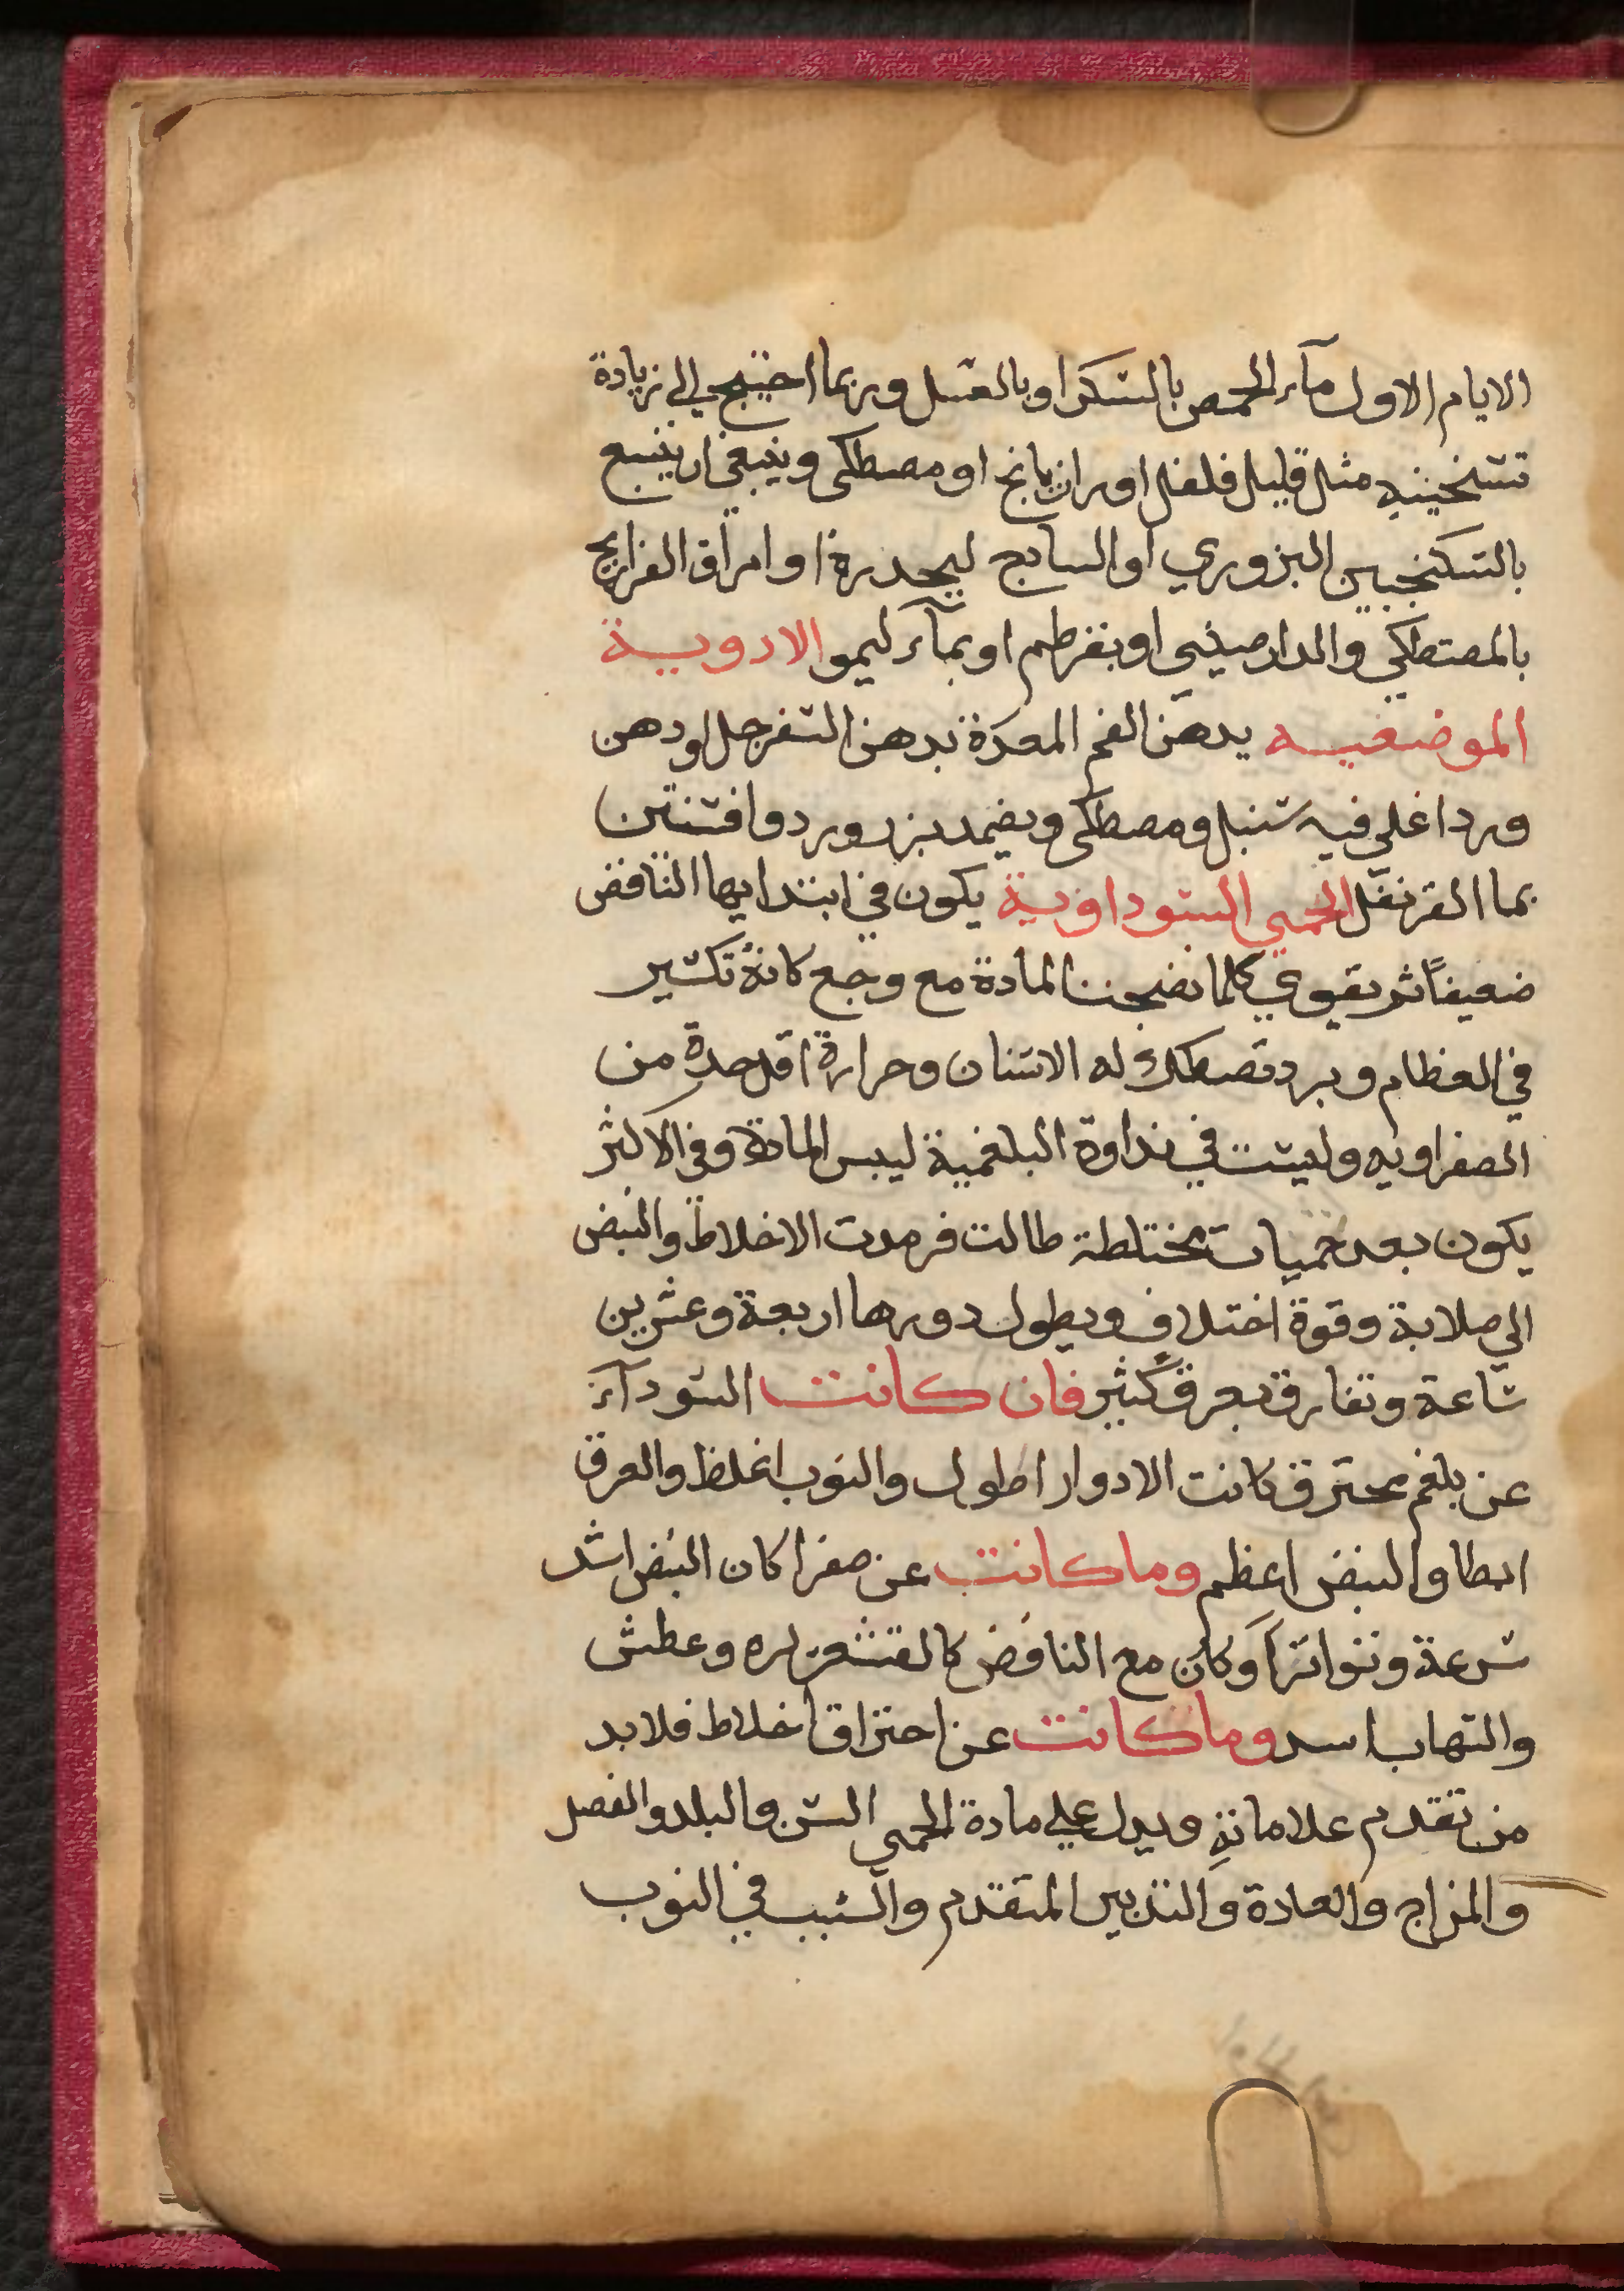 الايام الاول مآء الحمص بالسكر او بالعسل وربما احتيج الي زيادة
تسخينه مثل قليل فلفل او رازيانج او مصطكي وينبغي ان يتبع
بالسكنجبين البزوري او الساذج ليحدره او امراق الفراريج
بالمصطكي والدارصيني او بقرطم او بمآء ليمو الادوية
الموضعيه يدهن الفم المعدة بدهن السفرجل او دهن
ورد اغلي فيه سنبل ومصطكي ويضمد بزر ورد وافسنتين
بما القرنفل الحمي السوداوية يكون في ابتدايها النافض
ضعيفاً ثم يقوي كلما نضجت المادة مع وجع كانه تكسير
في العظام وبرد تصطك له الاسنان وحرارة اقل حدة من
الصفراويه وليست في نداوة البلغمية ليبس المادة وفي الاكثر
يكون بعد حميات مختلطة طالت فرمدت الاخلاط والنبض
الي صلابة وقوة اختلاف ويطول دورها اربعة وعشرين
ساعة وتفارق بعرق كثير فان كانت السودآء
عن بلغم محترق كانت الادوار اطول والنوب اغلظ والعرق
ابطا والنبض اعظم وما كانت عن صفرا كان النبض اشد
سرعة وتواتراً وكان مع النافض كالقشعريره وعطش
والتهاب اسد وما كانت عن احتراق اخلاط فلا بد
من تقدم علاماته ويدل علي مادة الحمي السن والبلد والفصل
والمزاج والعادة والتدبير المتقدم والسبب في النوب